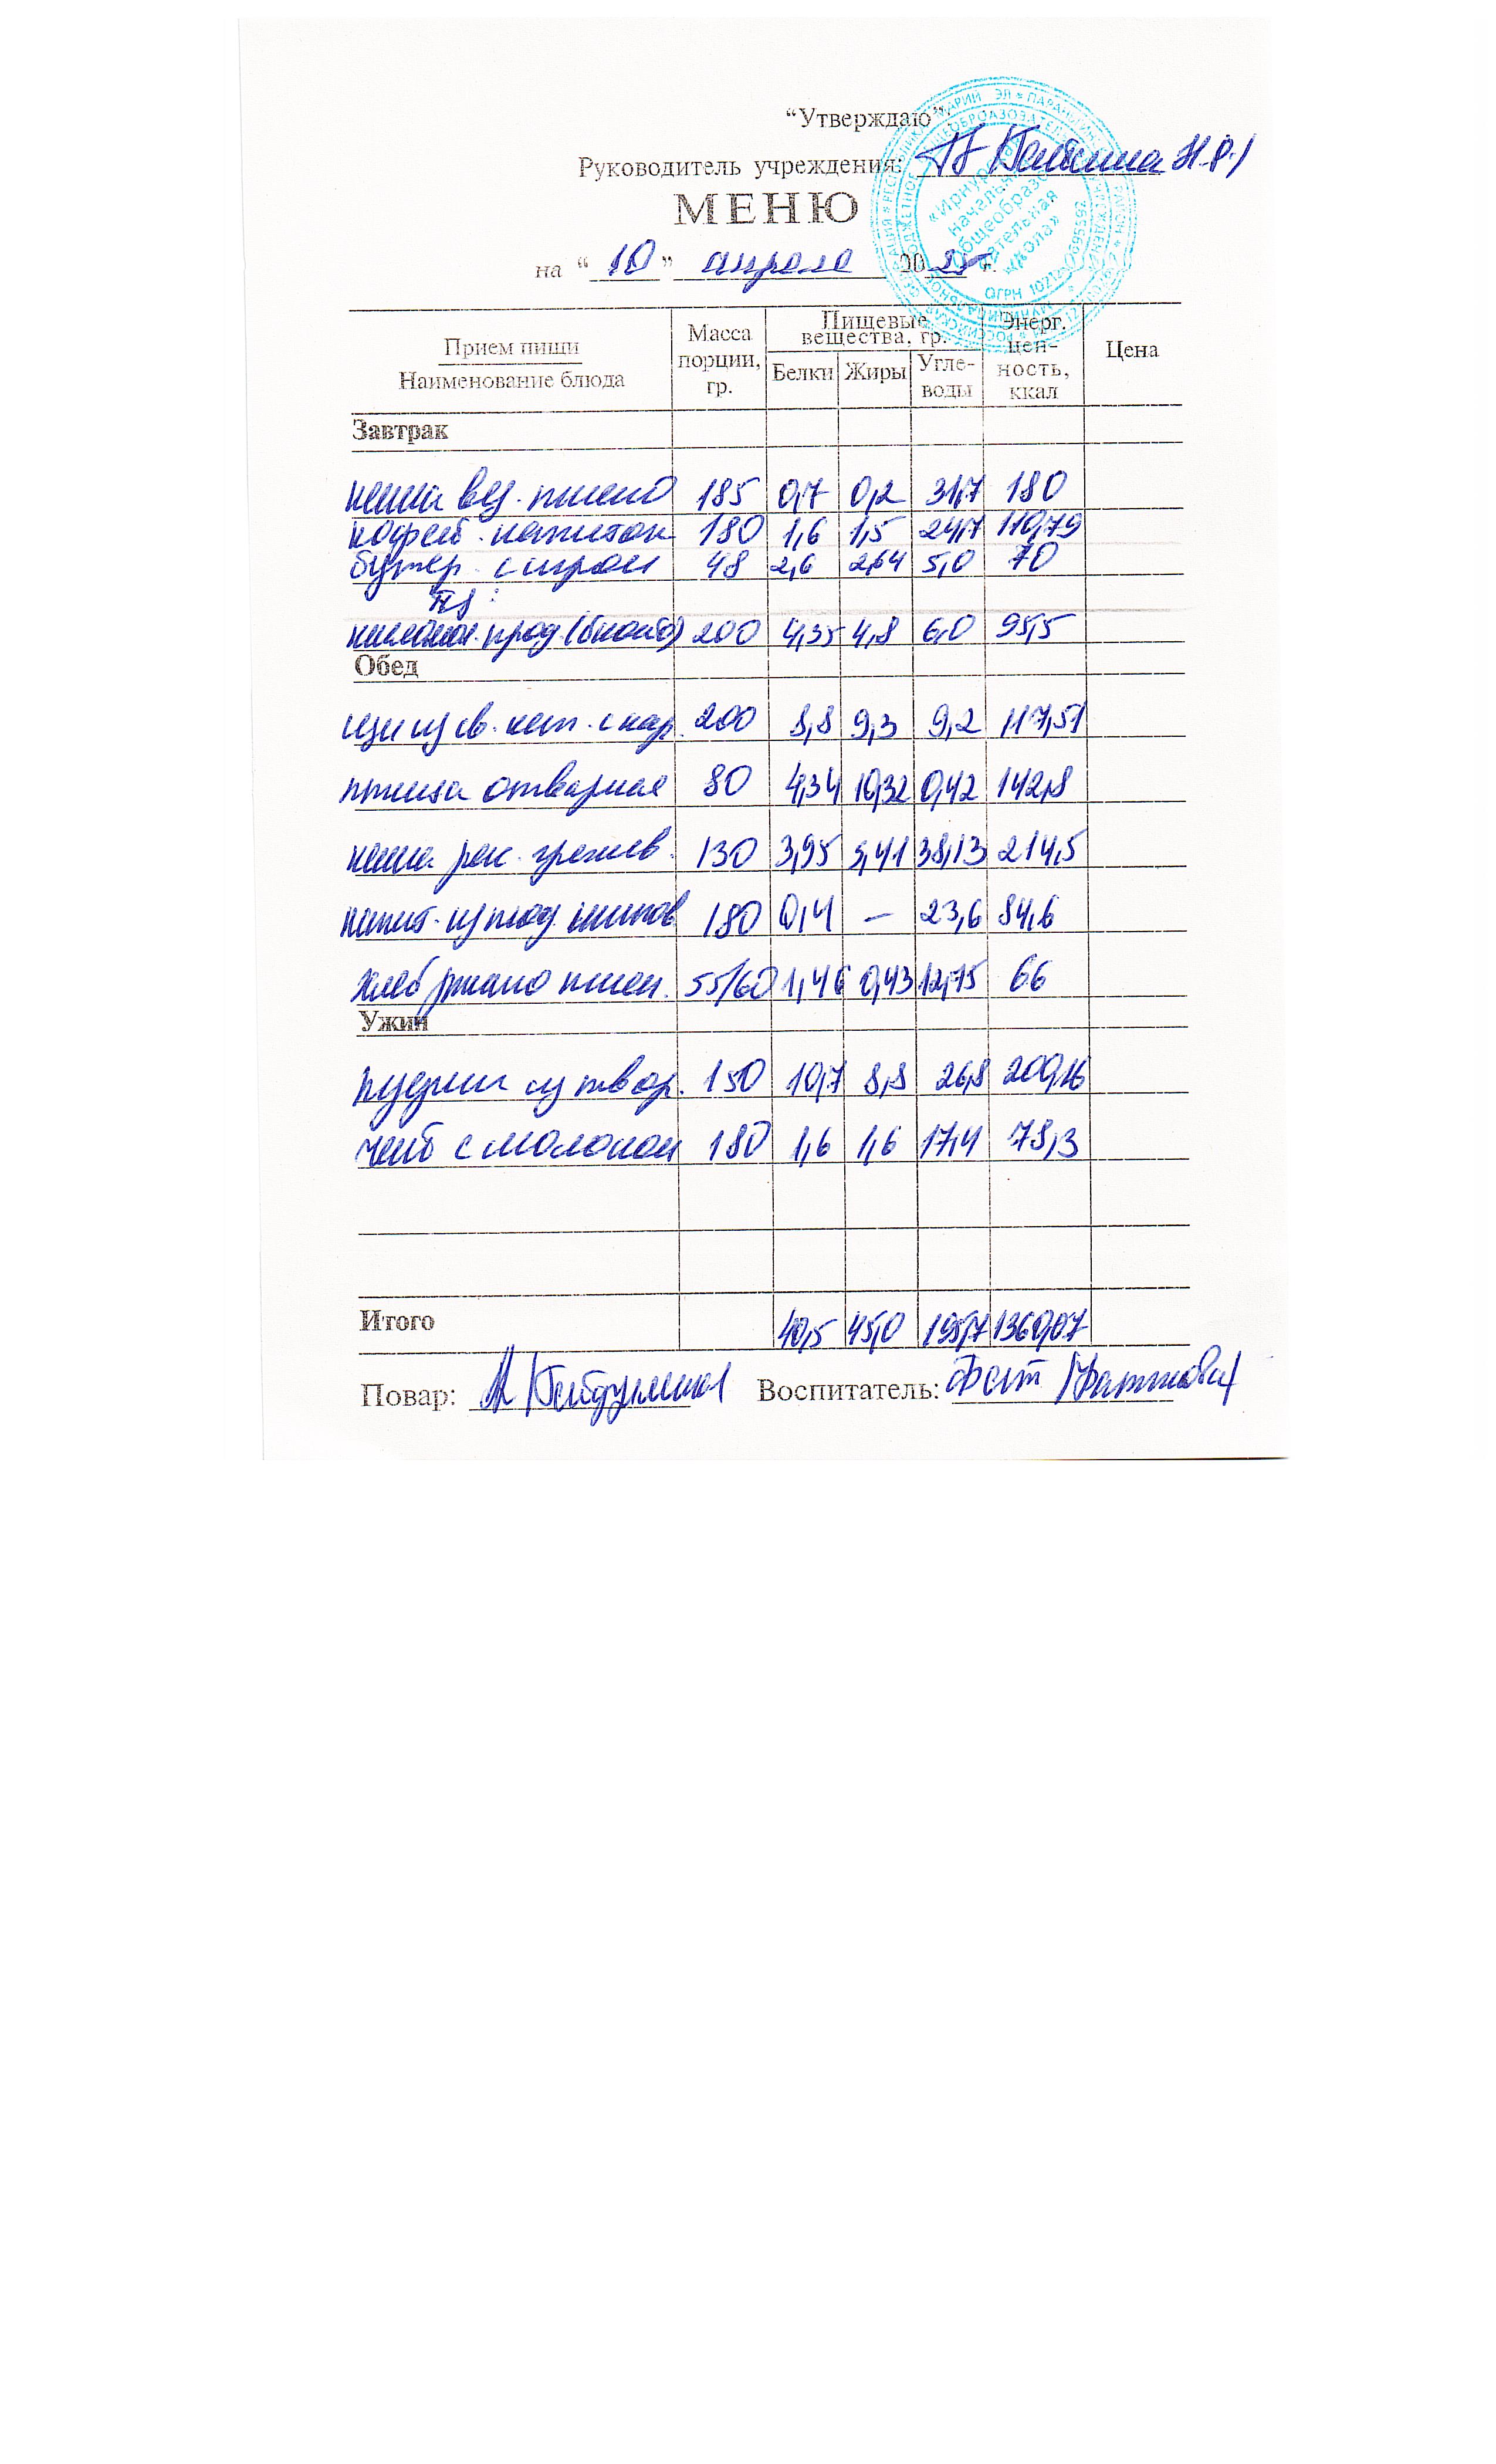 “Утверждаю”
Руководитель учреждения:
МЕНЮ
на “10” апреля 2025 г.
Прием пищи
Наименование блюда
Масса порции, гр.
Пищевые вещества, гр.
Белки Жиры Угле-воды
Энерг. цен-ность, ккал
Цена
Завтрак
каша вяз. пшено 185 0,7 0,2 31,7 180
кофейн. напиток 180 1,6 1,5 24,7 110,79
бутер. с сыром 48 2,6 2,64 5,0 70
прод 200 4,35 4,8 6,0 95,5
Обед
щи из св. кап. с кар. 200 8,8 9,3 9,2 117,51
птица отварная 80 4,34 10,32 0,42 142,8
каша рас. гречнев. 130 3,95 5,41 38,13 214,5
напит. из плод. шипов 180 0,4 – 23,6 84,6
хлеб ржано пшен. 55/60 1,46 0,43 12,75 66
Ужин
пудинг из твор. 150 10,7 8,8 26,8 200,16
чай с молоком 180 1,6 1,6 17,4 78,3
Итого 40,5 45,0 195,7 1360,07
Повар: Воспитатель: